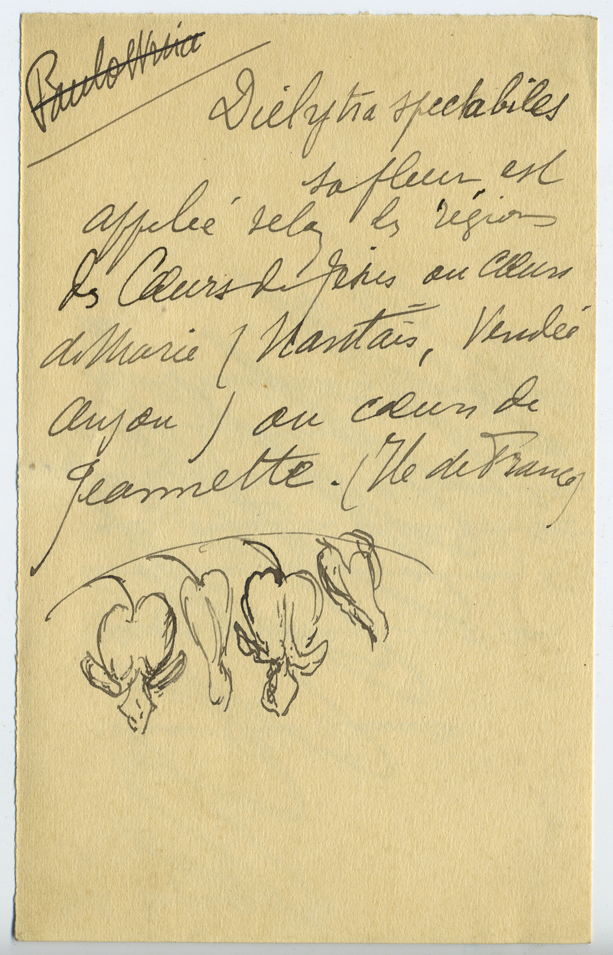 Paulownia
Dielytra spectabiles
sa fleur est
appelée selon les régions
des Cœurs de Jésus ou cœurs
de Marie (Nantais, Vendée
Anjou) ou cœurs de
Jeannette. (Ile de France)